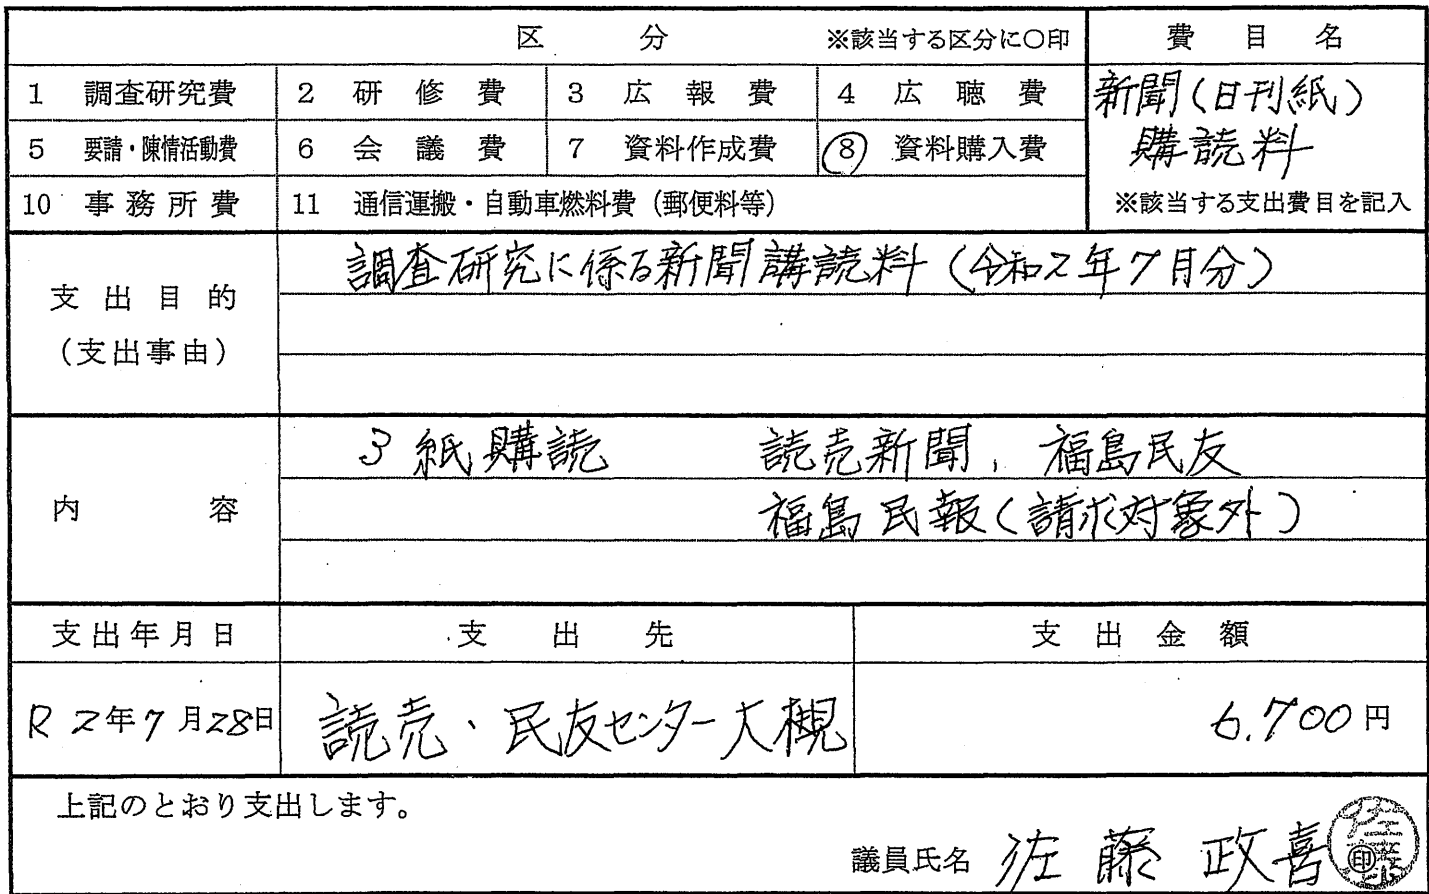 区 分 ※該当する区分に○印
費 目 名
1 調査研究費 2 研 修 費 3 広 報 費 4 広 聴 費
5 要請・陳情活動費 6 会 議 費 7 資料作成費 8 資料購入費
10 事 務 所 費 11 通信運搬・自動車燃料費(郵便料等)
新聞(日刊紙)
購読料
※該当する支出費目を記入
支 出 目 的
(支出事由)
調査研究に係る新聞講読料(令和2年7月分)
内 容
3紙購読 読売新聞、福島民友
福島民報(請求対象外)
支出年月日 支 出 先 支 出 金 額
R2年7月28日 読売・民友センター大槻 6.700円
上記のとおり支出します。
議員氏名 佐藤 政喜 印
佐藤